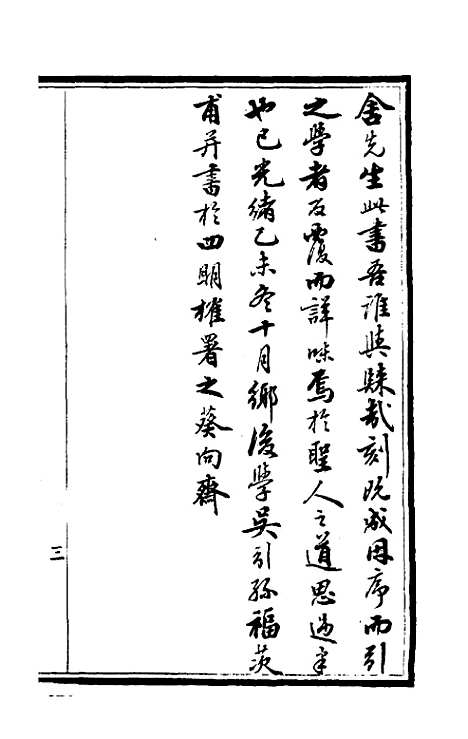 舍先生此書吾誰與歸哉刻既成因序而引
之學者反覆而詳味焉於聖人之道思過半
也已光緒乙未冬十月鄉後學吳引孫福茨
甫并書於四明榷署之葵向齋
三